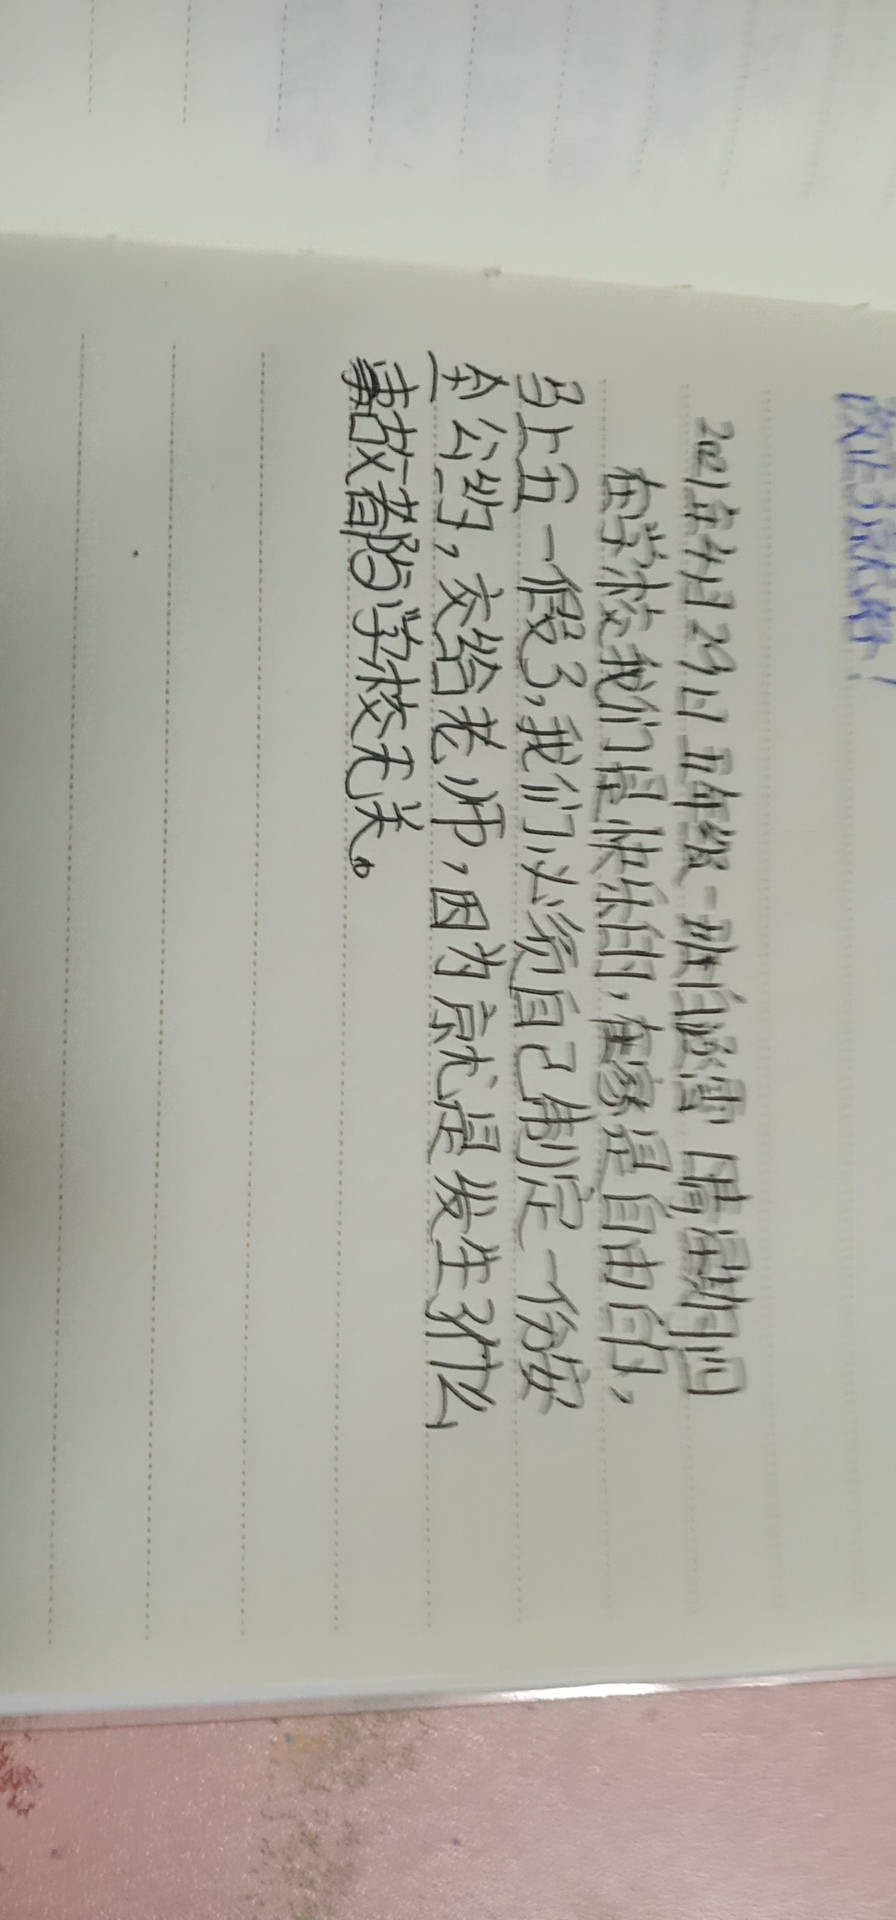 改正了就好!
2021年4月29日 五年级一班白涵雪 晴 星期四
在学校我们是快乐的,在家是自由的,
马上五一假了,我们必须自己制定一份安
全公约,交给老师,因为就是发生了什么
事故都与学校无关。